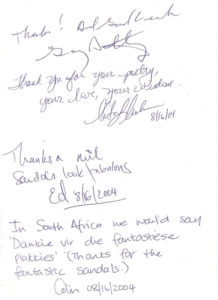 Thanks! And Good Luck
Thank you for your poetry,
your love, your
8/16/04
Thanks a mil
Sandals look fabulous
Ed 8/16/2004
In South Africa we would say
'Dankie vir die fantastiese
plakkies' (Thanks for the
fantastic sandals.)
Colin 08/16/2004